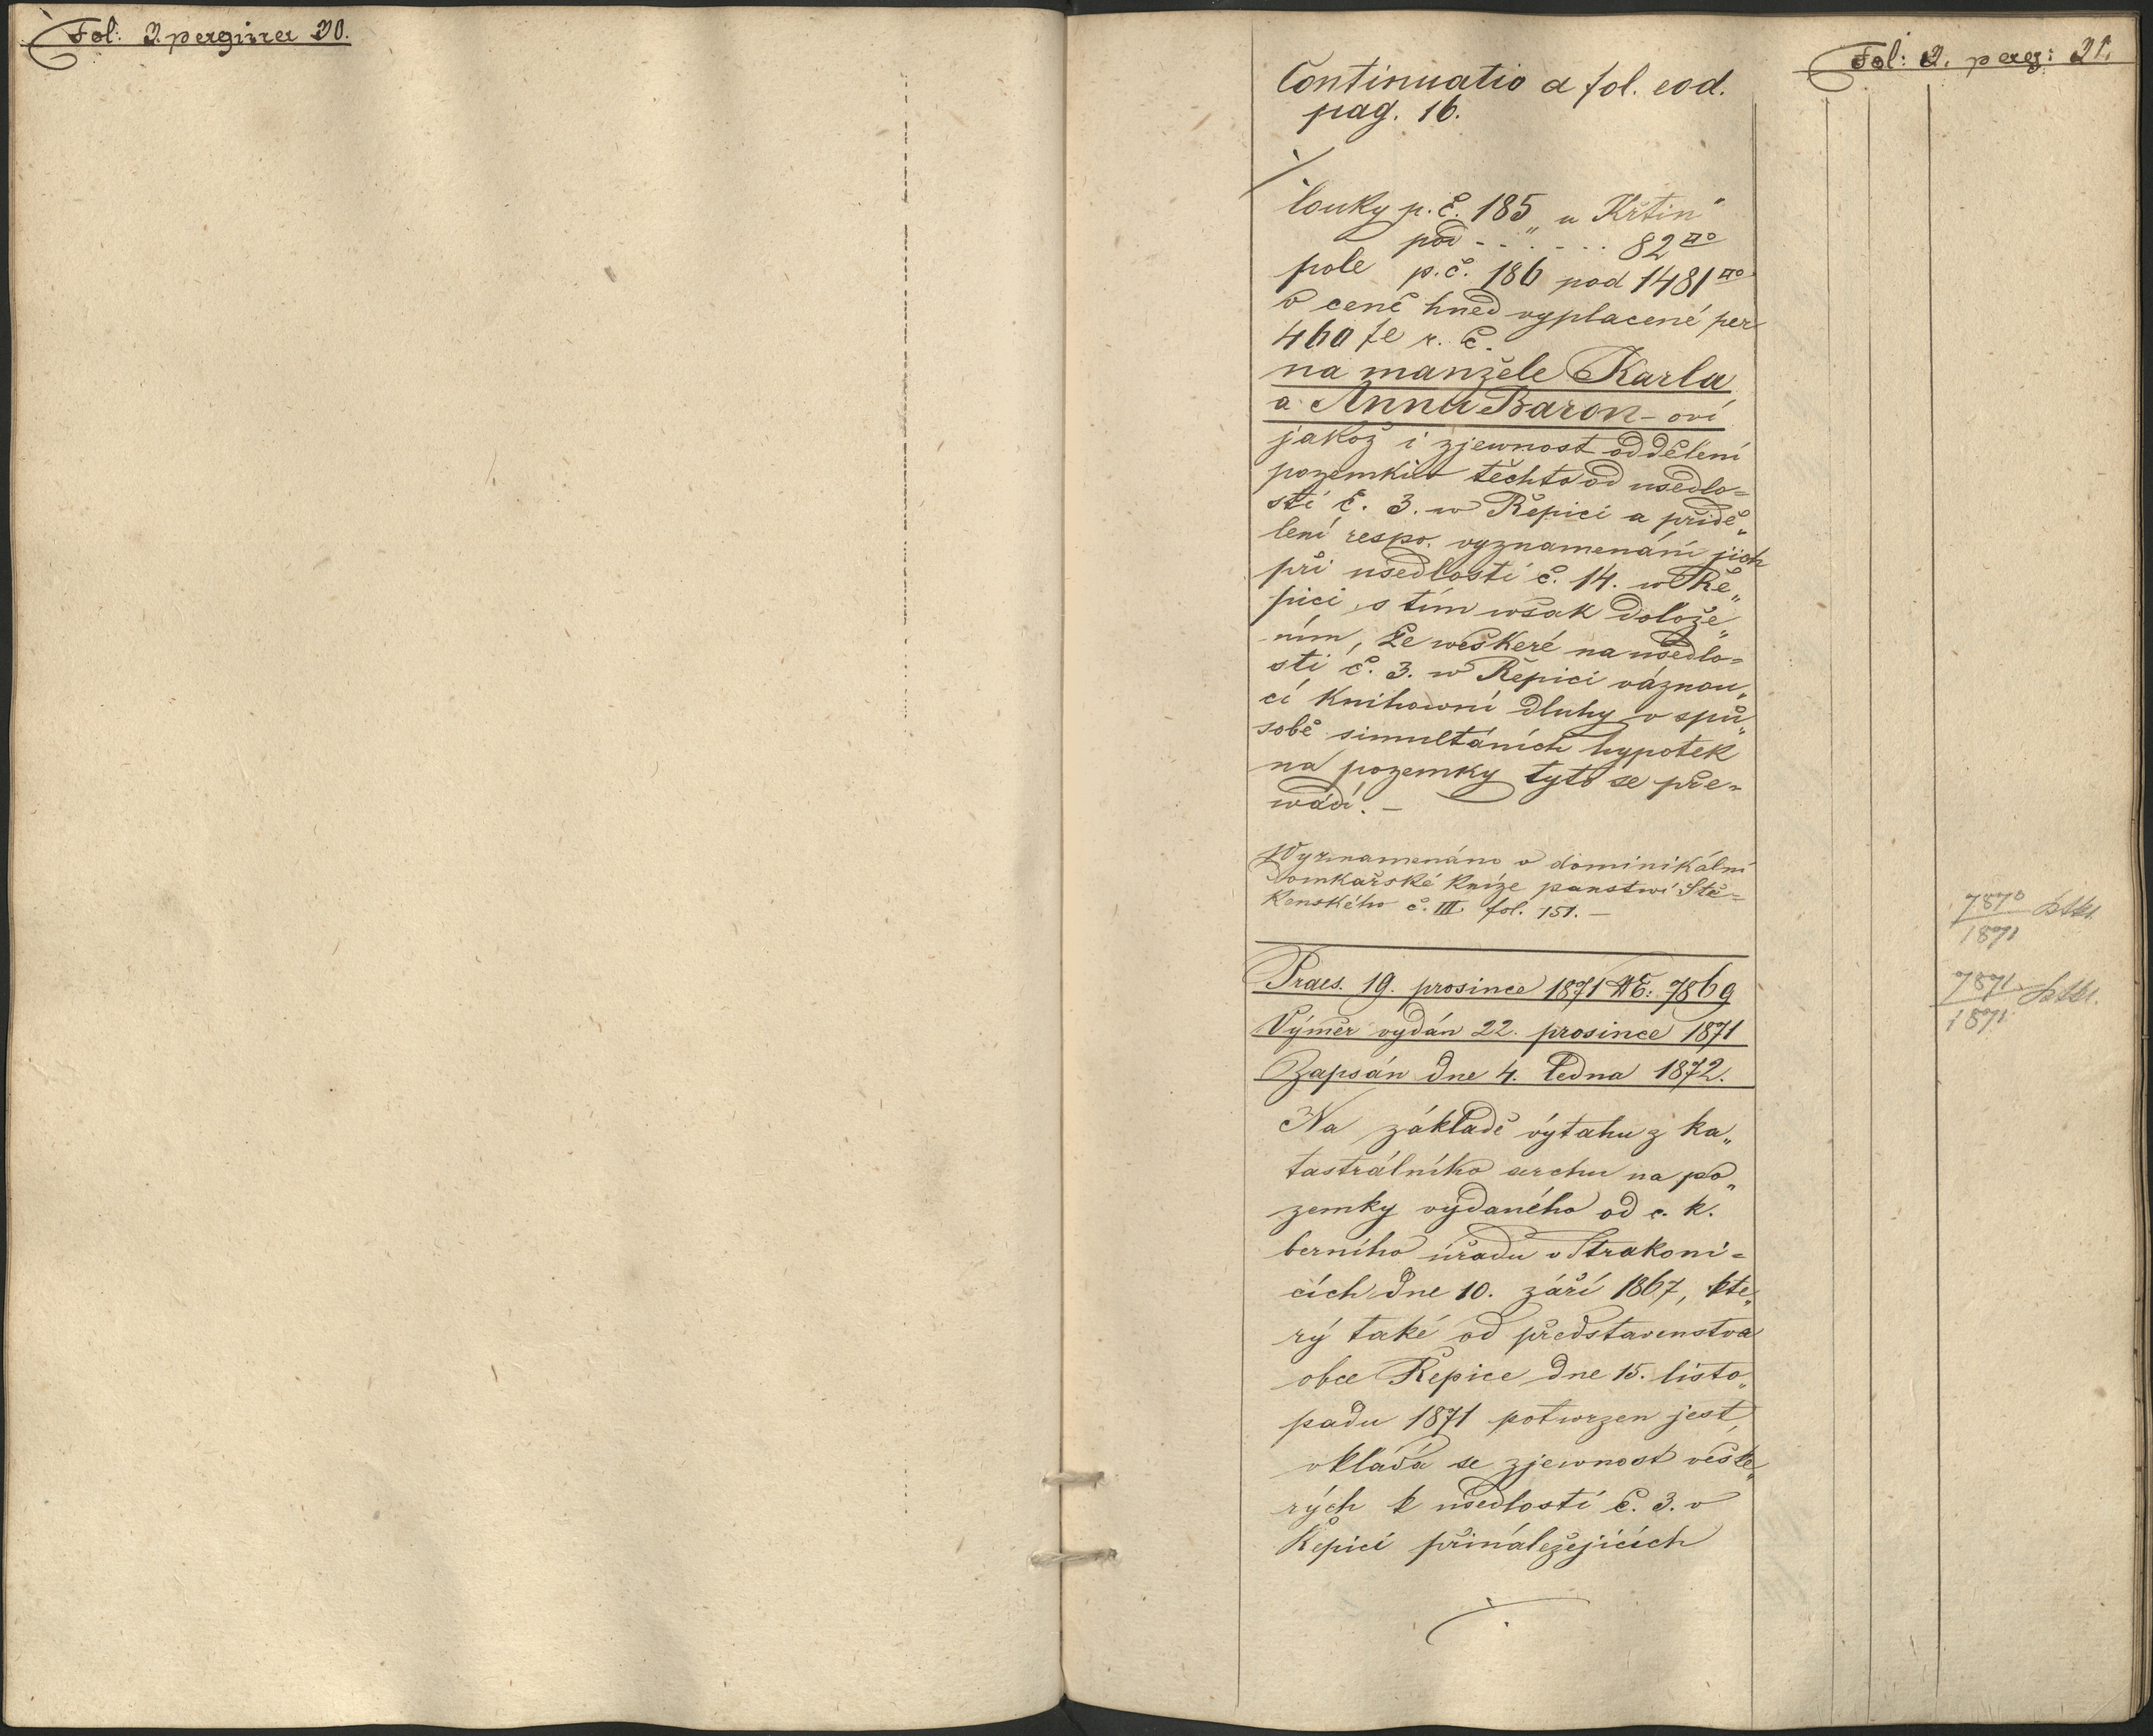 Fol: 2. pagina 20.
Fol: 2. pag: 21.
Continuatio a fol. eod.
pag. 16.
louky p. č. 185 „u Křtin“
pod - - . - . . 82□°
pole p. č. 186 pod 1481□°
v ceně hned vyplacené per
460 f r. č.
na manžele Karla
a Annu Baron-ovi
jakož i zjewnost oddělení
pozemkův těchto od usedlo=
sti č. 3. w Řepici a přidě„
lení respo. vyznamenání jich
při usedlosti č. 14. w Ře„
pici, s tím wšak dolože„
ním, že weškeré na usedlo=
sti č. 3. w Řepici váznou„
cí knihowní dluhy v spů„
sobě simultáních hypotek
na pozemky tyto se pře=
wádí. –
Wyznamenáno v dominikální
Domkařské knize panstwí Ště=
kenského č. III. fol. 151. –
Praes. 19. prosince 1871 NE: 7869
Výměr vydán 22. prosince 1871
Zapsán dne 4. ledna 1872.
Na základě výtahu z ka„
tastrálního archu na po„
zemky vydaného od c. k.
berního úřadu v Strakoni=
cích dne 10. září 1867, kte„
rý také od představenstva
obce Řepice dne 15. listo„
padu 1871 potwrzen jest,
vkládá se zjewnost veške„
rých k usedlosti č. 3. v
Řepici přináležejících
7870
1871
7871
1871